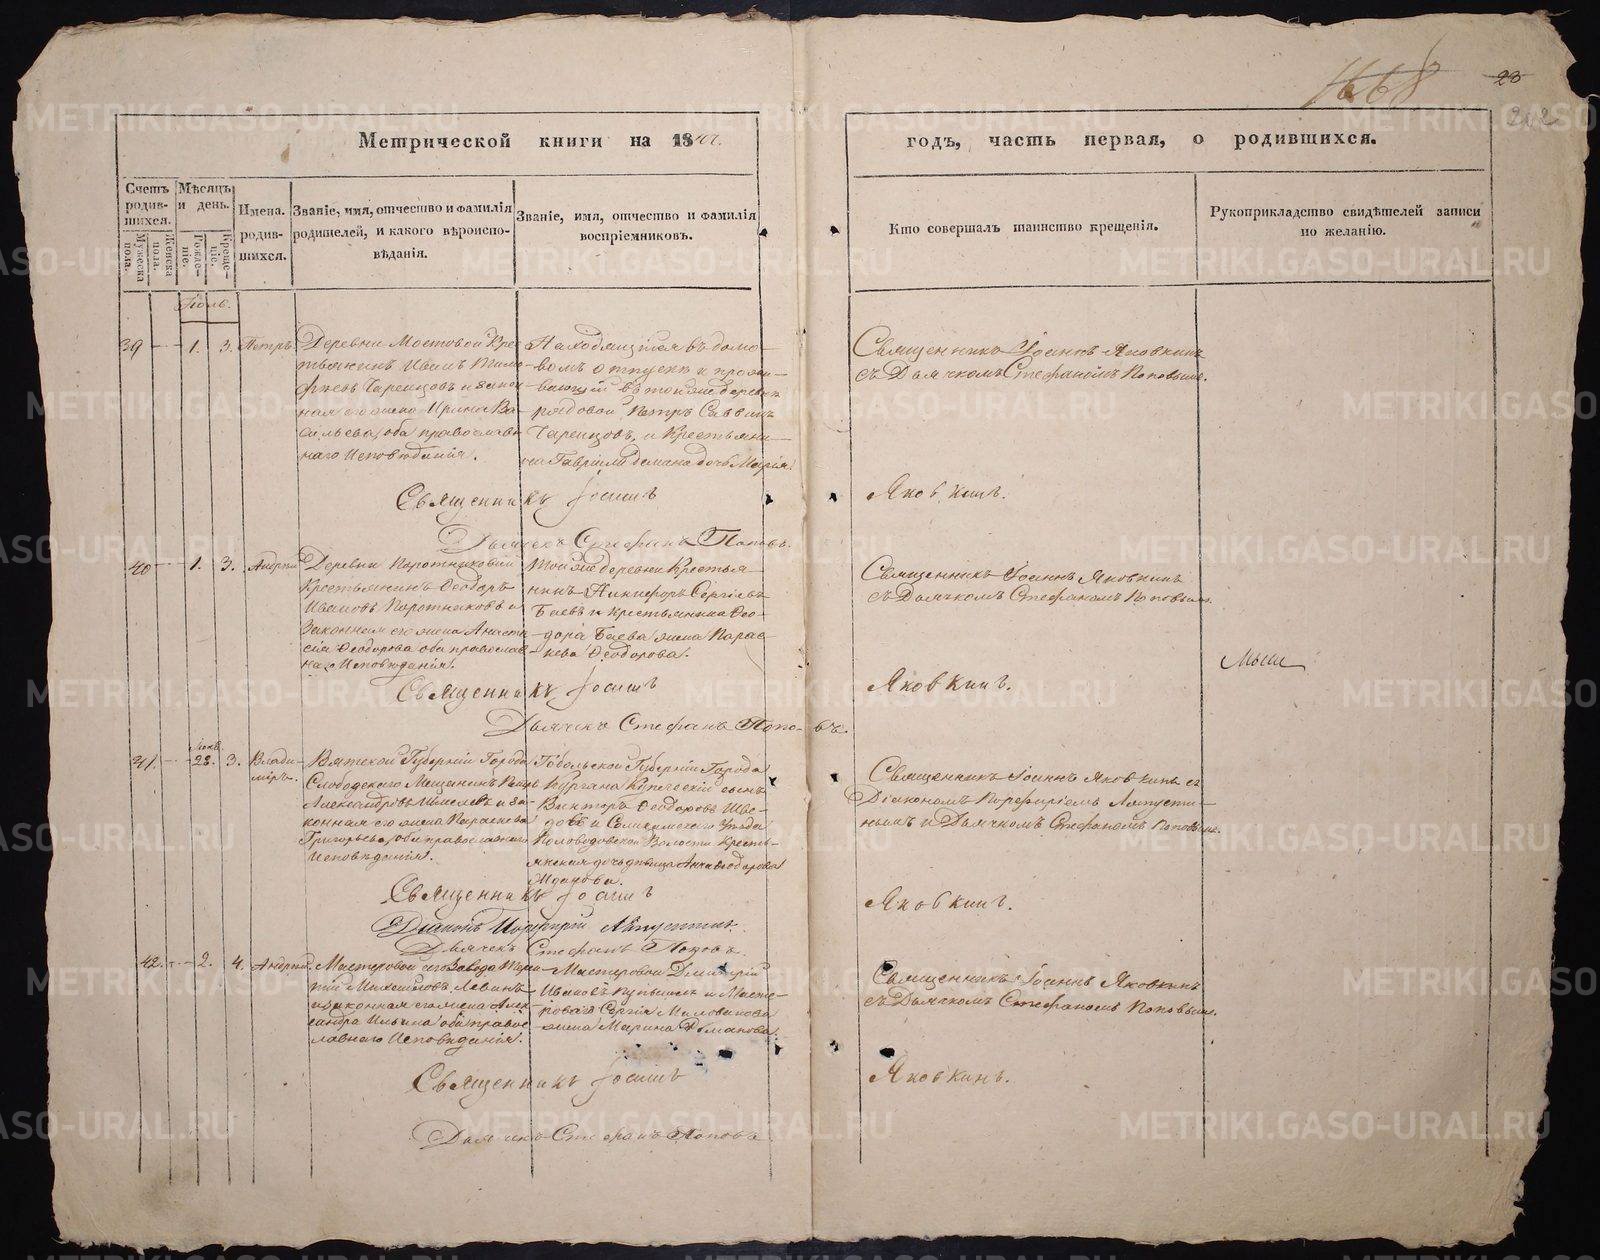 1668
23
212
Метрической книги на 18
годъ, часть первая, о родившихся.
Счетъ родив-шихся.
Мужеска пола.
Женска пола.
Мѣсяцъ и день.
Рожде-ніе.
Креще-ніе.
Имена родив-шихся.
Званіе, имя, отчество и фамилія
родителей, и какого вѣроиспо-
вѣданія.
Званіе, имя, отчество и фамилія
воспріемниковъ.
Кто совершалъ таинство крещенія.
Рукоприкладство свидѣтелей записи
по желанію.
39 1. 3. Петръ
Деревни Мостовой Кре-
стьянинъ Иванъ Тимо-
и закон-
ная его жена Ирина Ва-
сильева, оба православ-
наго Исповѣданія.
Находящійся въ домо-
вомъ отпускѣ и прожи-
вающій въ той же деревнѣ
рядовой Петръ Саввинъ
и Крестьяни-
на дочь Марія.
Священникъ Іоаннъ Яковкинъ
съ Дьячкомъ Стефаномъ Поповымъ.
Священникъ Іоаннъ Яковкинъ.
Дьячекъ Стефанъ Поповъ.
40 1. 3. Андрей
Деревни Коротниковой
Крестьянинъ Ѳеодоръ
Ивановъ Коротниковъ и
Законная его жена Анаста-
сія Ѳеодорова оба православ-
наго Исповѣданія.
Той же деревни Крестья-
нинъ Никифоръ Сергіевъ
Баевъ и крестьянина Ѳео-
дора Баева жена Парас-
кева Ѳеодорова.
Священникъ Іоаннъ Яковкинъ
съ Дьячкомъ Стефаномъ Поповымъ.
Священникъ Іоаннъ Яковкинъ.
Дьячекъ Стефанъ Поповъ.
41. 28. 3. Влади-
міръ.
Вятской Губерніи Города
Слободскаго Мещанинъ
Александровъ Шмелевъ и за-
конная его жена Параскева
Григорьева, оба православнаго
Исповѣданія.
Тобольской Губерніи Города
Кургана Купеческій сынъ
Викторъ Ѳеодоровъ Шве-
довъ и Соликамскаго Уезда
Половодовской Волости Кресть-
янская дочь девица Анна Ѳеодорова
Священникъ Іоаннъ Яковкинъ съ
Діакономъ Порфиріемъ Ляпусти-
нымъ и Дьячкомъ Стефаномъ Поповымъ.
Священникъ Іоаннъ Яковкинъ.
Діаконъ Порфирій Ляпустинъ.
Дьячекъ Стефанъ Поповъ.
42. 2. 4. Андрей.
Мастеровой сего Завода
и законная его жена Алек-
сандра Ильина оба право-
славнаго Исповѣданія.
Мастеровой Димитрій
Ивановъ и Масте-
роваго Сергія Миловано
жена Марина Романова.
Священникъ Іоаннъ Яковкинъ
съ Дьячкомъ Стефаномъ Поповымъ.
Священникъ Іоаннъ Яковкинъ.
Дьячекъ Стефанъ Поповъ
METRIKI.GASO-URAL.RU